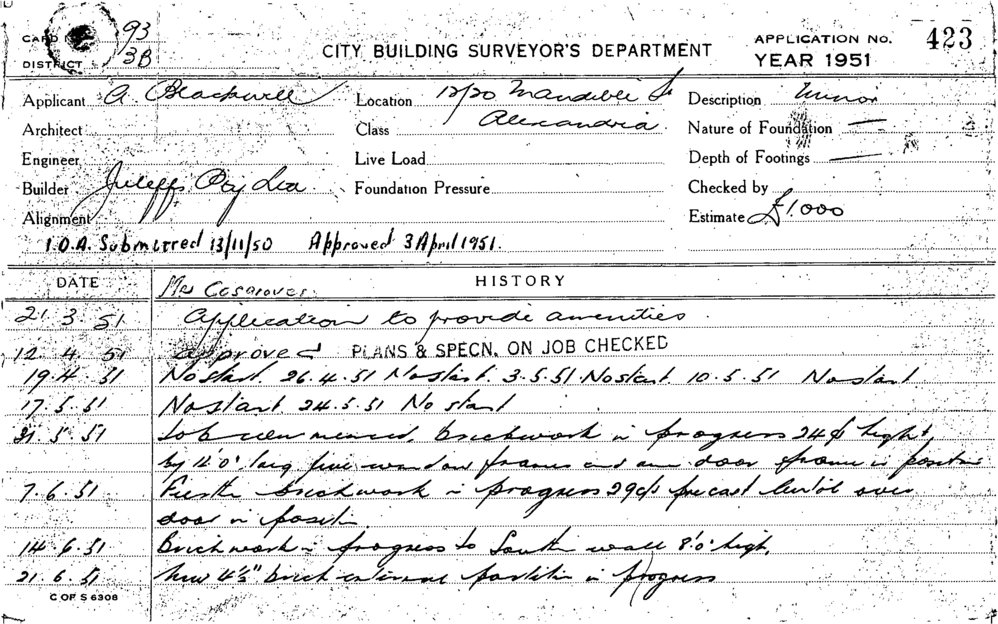 CARD 93
DISTRICT 3B
CITY BUILDING SURVEYOR'S DEPARTMENT
APPLICATION No. 423
YEAR 1951
Applicant A. Blackwell
Location 12/20 Mandible St
Alexandria.
Description Minor
Architect
Class
Nature of Foundation —
Engineer
Live Load
Depth of Footings —
Builder Juleff Pty Ltd.
Foundation Pressure
Checked by
Alignment
Estimate £1,000
I.O.A. Submitted 13/11/50 Approved 3 April 1951.
DATE HISTORY
Mr Cosgrove
21. 3. 51 Application to provide amenities.
12. 4. 51 approved PLANS & SPECN. ON JOB CHECKED
19.4.51 No start. 26.4.51 No start. 3.5.51 No start. 10.5.51 No start
17.5.51 No start. 24.5.51 No start
31.5.51 Job commenced, brickwork in progress 24 high,
by long five window frames and one door frame in position
7.6.51 Further brickwork in progress 29 precast lintol over
door in position
14.6.51 Brickwork in progress to South wall 8'0" high,
21.6.51 New 4½" brick internal partition in progress
C OF S 6308